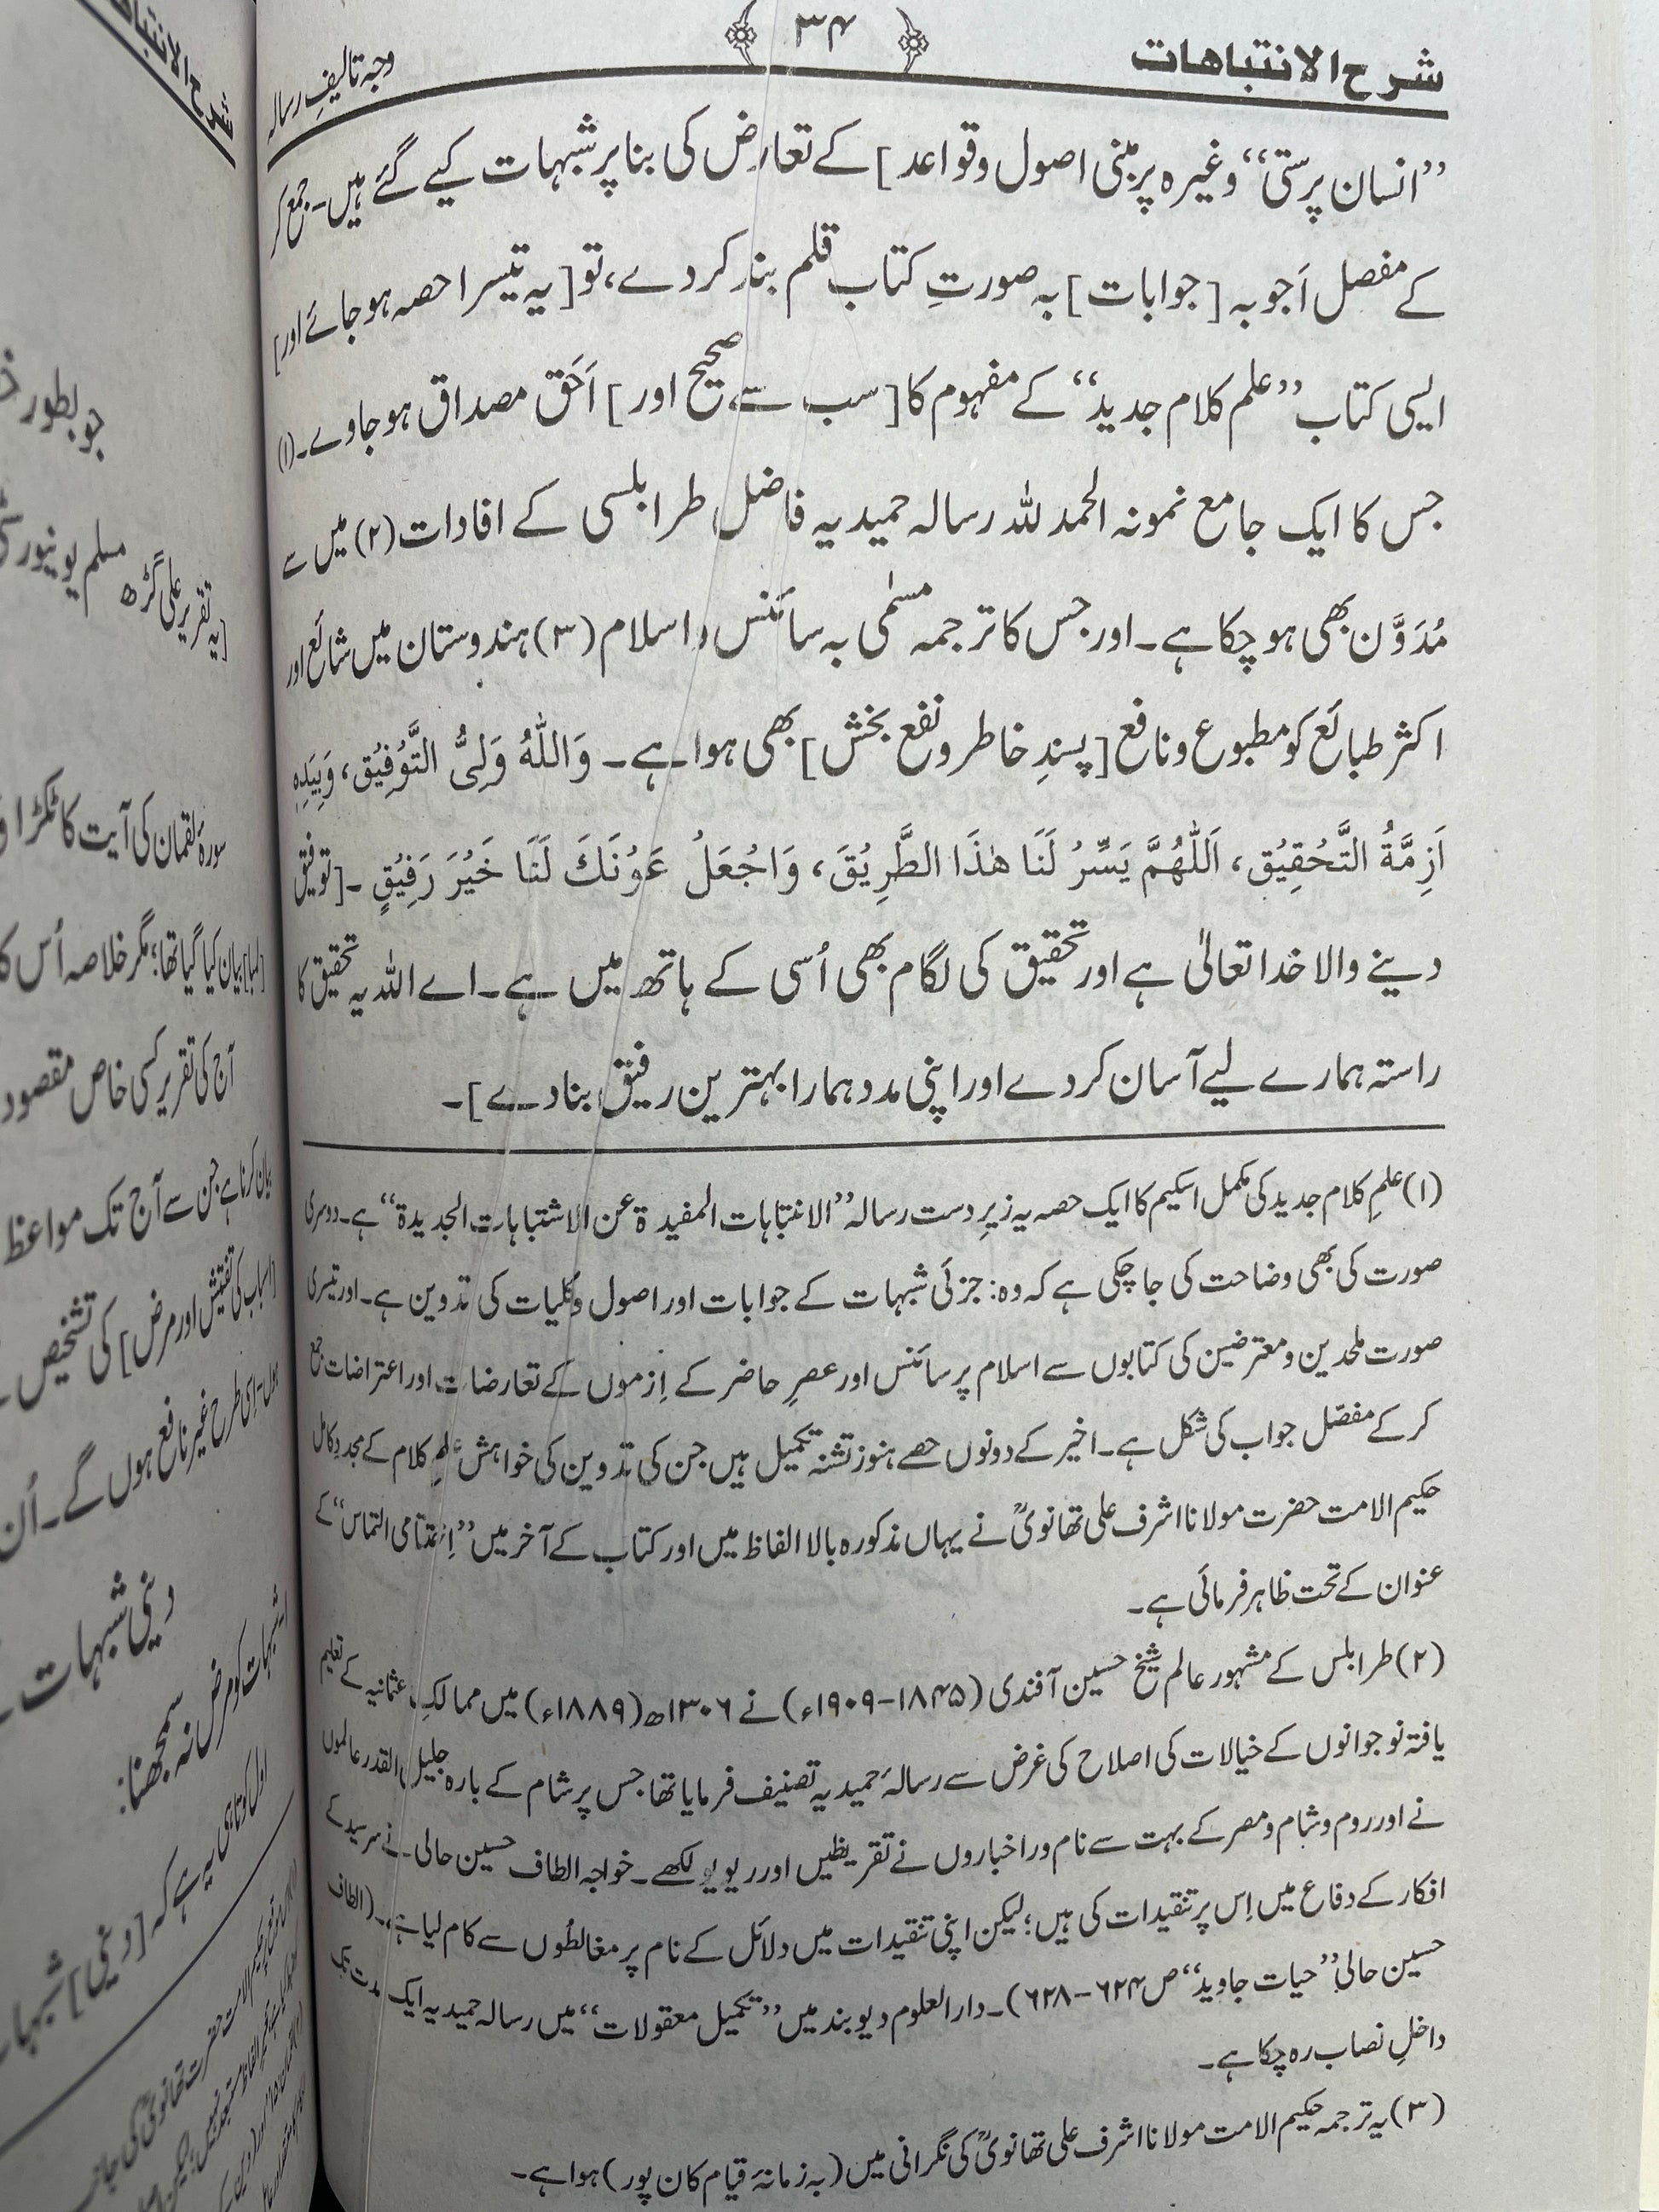 شرح الانتباهات
۳۴
وجہ تالیفِ رسالہ
”انسان پرستی“ وغیرہ پر مبنی اصول وقواعد] کے تعارض کی بنا پر شبہات کیے گئے ہیں۔ جمع کر
کے مفصل اَجوبہ [جوابات] بہ صورتِ کتاب قلم بند کر دے، تو [یہ تیسرا حصہ ہو جائے اور]
ایسی کتاب ”علم کلام جدید“ کے مفہوم کا [سب سے صحیح اور] اَحَق مصداق ہو جاوے۔(۱)
جس کا ایک جامع نمونہ الحمد للہ رسالہ حمیدیہ فاضل طرابلسی کے افادات (۲) میں سے
مُدَوَّن بھی ہو چکا ہے۔ اور جس کا ترجمہ مسمّٰی بہ سائنس و اسلام (۳) ہندوستان میں شائع اور
اکثر طبائع کو مطبوع ونافع [پسندِ خاطر ونفع بخش] بھی ہوا ہے۔ وَاللّٰہُ وَلِیُّ التَّوْفِیْقِ، وَبِیَدِہٖ
اَزِمَّۃُ التَّحْقِیْقِ، اَللّٰھُمَّ یَسِّرْ لَنَا ھٰذَا الطَّرِیْقَ، وَاجْعَلْ عَوْنَكَ لَنَا خَیْرَ رَفِیْقٍ ۔ [توفیق
دینے والا خدا تعالیٰ ہے اور تحقیق کی لگام بھی اُسی کے ہاتھ میں ہے۔ اے اللہ یہ تحقیق کا
راستہ ہمارے لیے آسان کر دے اور اپنی مدد ہمارا بہترین رفیق بنا دے]۔
(۱) علمِ کلام جدید کی مکمل اسکیم کا ایک حصہ یہ زیرِ دست رسالہ ”الانتباہات المفیدۃ عن الاشتباہات الجدیدۃ“ ہے۔ دوسری
صورت کی بھی وضاحت کی جا چکی ہے کہ وہ: جزئی شبہات کے جوابات اور اصول وکلیات کی تدوین ہے۔ اور تیسری
صورت ملحدین ومعترضین کی کتابوں سے اسلام پر سائنس اور عصرِ حاضر کے اِزموں کے تعارضات اور اعتراضات جمع
کر کے مفصّل جواب کی شکل ہے۔ اخیر کے دونوں حصے ہنوز تشنۂ تکمیل ہیں جن کی تدوین کی خواہش علمِ کلام کے مجددِ کامل
حکیم الامت حضرت مولانا اشرف علی تھانویؒ نے یہاں مذکورہ بالا الفاظ میں اور کتاب کے آخر میں ”اِختتامی التماس“ کے
عنوان کے تحت ظاہر فرمائی ہے۔
(۲) طرابلس کے مشہور عالم شیخ حسین آفندی (۱۸۴۵-۱۹۰۹ء) نے ۱۳۰۶ھ (۱۸۸۹ء) میں ممالکِ عثمانیہ کے تعلیم
یافتہ نوجوانوں کے خیالات کی اصلاح کی غرض سے رسالۂ حمیدیہ تصنیف فرمایا تھا جس پر شام کے بارہ جلیل القدر عالموں
نے اور روم وشام ومصر کے بہت سے نام ور اخباروں نے تقریظیں اور ریویو لکھے۔ خواجہ الطاف حسین حالی نے سرسید کے
افکار کے دفاع میں اِس پر تنقیدات کی ہیں؛ لیکن اپنی تنقیدات میں دلائل کے نام پر مغالطوں سے کام لیا ہے۔ (الطاف
حسین حالی ”حیات جاوید“ ص ۶۲۴-۶۲۸)۔ دار العلوم دیوبند میں ”تکمیل معقولات“ میں رسالہ حمیدیہ ایک مدت تک
داخلِ نصاب رہ چکا ہے۔
(۳) یہ ترجمہ حکیم الامت مولانا اشرف علی تھانویؒ کی نگرانی میں (بہ زمانۂ قیام کان پور) ہوا ہے۔
شرح الانتباہات
جو بطور
مسلم یونیورسٹی
[یہ تقریر علی گڑھ
سورۂ لقمان کی آیت کا ٹکڑا
بیان کیا گیا تھا؛ مگر خلاصہ اُس کا
آج کی تقریر کسی خاص مقصود
بیان کرنا ہے جن سے آج تک مواعظ
اسباب کی تفتیش اور مرض] کی تشخیص
اسی طرح غیر نافع ہوں گے۔ اُن
دینی شبہات
شبہات کو مرض نہ سمجھنا:
اول کوتاہی یہ ہے کہ [دینی] شبہات